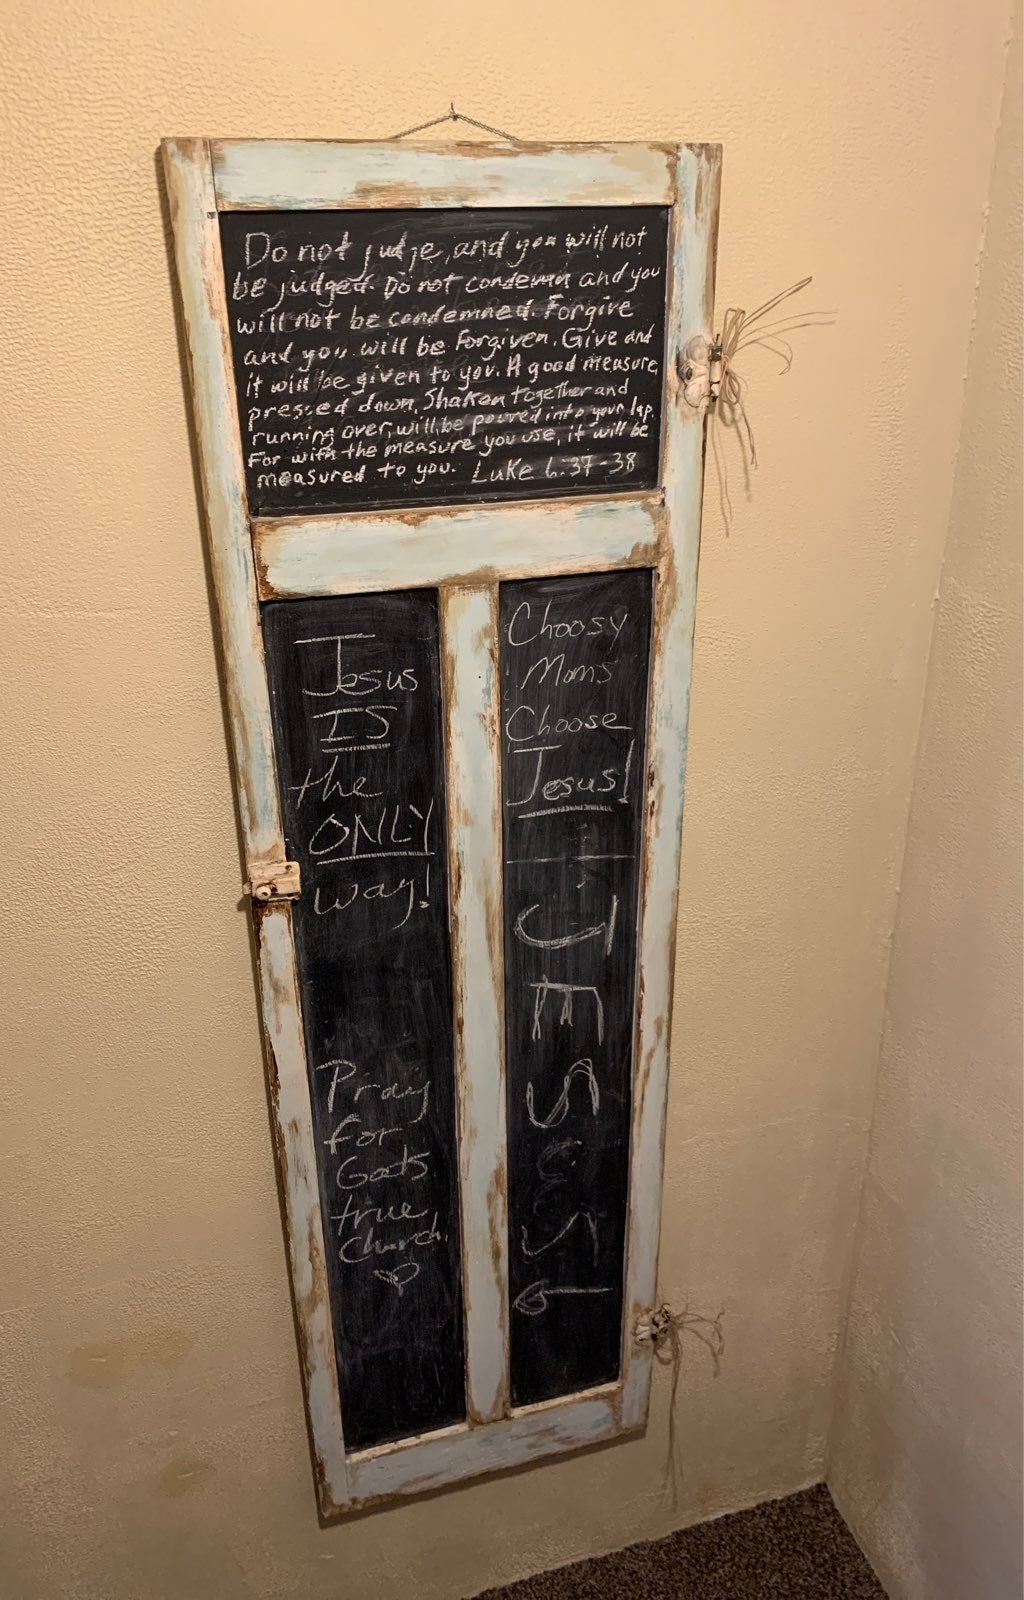 Do not judge, and you will not
be judged. Do not condemn and you
will not be condemned. Forgive
and you will be Forgiven. Give and
it will be given to you. A good measure,
pressed down, Shaken together and
running over, will be poured into your lap.
For with the measure you use, it will be
measured to you. Luke 6:37-38
Jesus
IS
the
ONLY
way!
Pray
for
God's
true
Church.
Choosy
Moms
Choose
Jesus!
JESUS